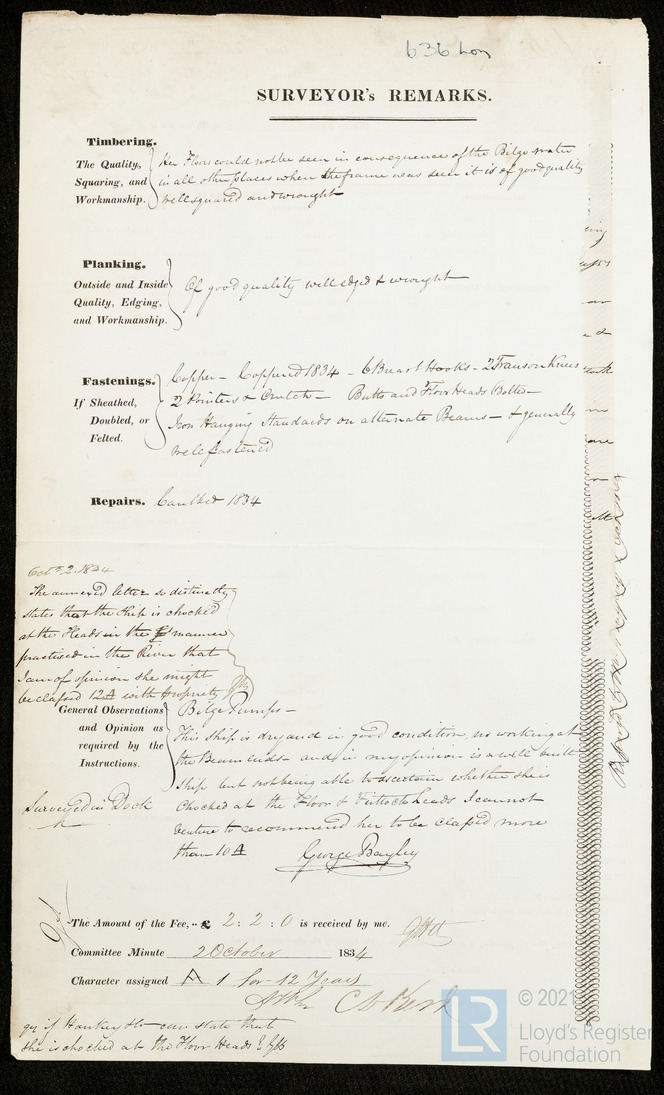 636 Lon
SURVEYOR's REMARKS.
Timbering.
The Quality,
Squaring, and
Workmanship.
Her Floors could not be seen in consequence of the Bilge water
in all other places when the frame was seen it is of good quality
well squared and wrought
Planking.
Outside and Inside
Quality, Edging,
and Workmanship.
Of good quality well edged & wrought
Fastenings.
If Sheathed,
Doubled, or
Felted.
Copper – Coppered 1834 – 6 Breast Hooks – 2 Transom Knees
2 Pointers & Crutch – Butts and Floor Heads Bolts –
Iron Hanging Standards on alternate Beams – & generally
well fastened
Repairs. Caulked 1834
Octr 2. 1834
The annexed letter so distinctly
states that the Ship is chocked
at the Heads in the manner
practised in the River that
I am of opinion she might
be classed 12 A with propriety
General Observations
and Opinion as
required by the
Instructions.
Bilge Pumps –
This Ship is dry and in good condition, no working at
the Beam ends – and in my opinion is a well built
Ship but not being able to ascertain whether she is
Chocked at the Floor & Futtock heads I cannot
venture to recommend her to be classed more
than 10 A
George Bayley
Surveyed in Dock
The Amount of the Fee, £ 2 : 2 : 0 is received by me.
Committee Minute 2 October 1834
Character assigned A 1 for 12 Years
can state that
she is chocked at the Floor Heads
LR © 2021
Lloyd's Register
Foundation